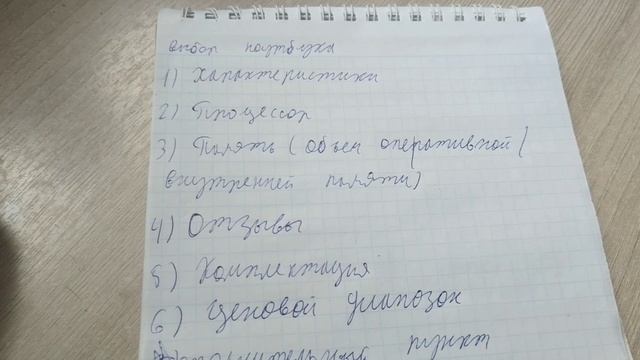 выбор ноутбука
1) Характеристики
2) Процессор
3) Память (объем оперативной /
внутренней памяти)
4) Отзывы
5) Комплектация
6) Ценовой диапозон
Дополнительный пункт